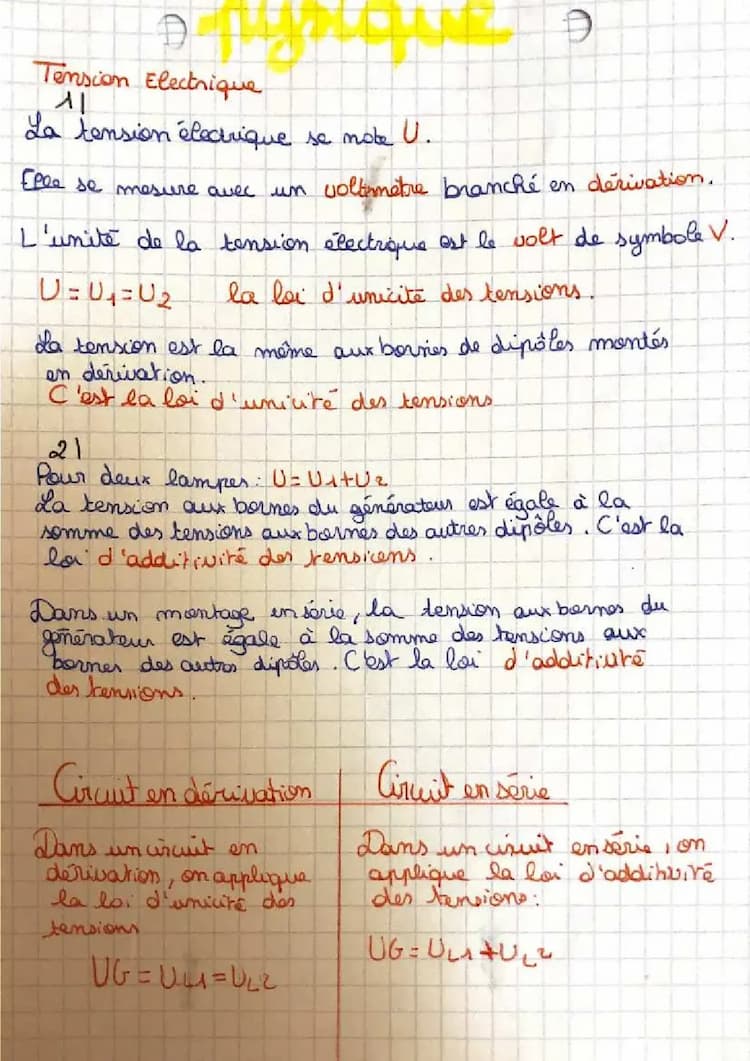 Physique
Tension Electrique
1)
La tension électrique se note U.
Elle se mesure avec un voltmètre branché en dérivation.
L'unité de la tension électrique est le volt de symbole V.
U = U1 = U2 la loi d'unicité des tensions.
La tension est la même aux bornes de dipôles montés
en dérivation.
C'est la loi d'unicité des tensions
2)
Pour deux lampes : U = U1 + U2
La tension aux bornes du générateur est égale à la
somme des tensions aux bornes des autres dipôles. C'est la
loi d'additivité des tensions.
Dans un montage en série, la tension aux bornes du
générateur est égale à la somme des tensions aux
bornes des autres dipôles. C'est la loi d'additivité
des tensions.
Circuit en dérivation
Dans un circuit en
dérivation, on applique
la loi d'unicité des
tensions
UG = UL1 = UL2
Circuit en série
Dans un circuit en série, on
applique la loi d'additivité
des tensions :
UG = UL1 + UL2